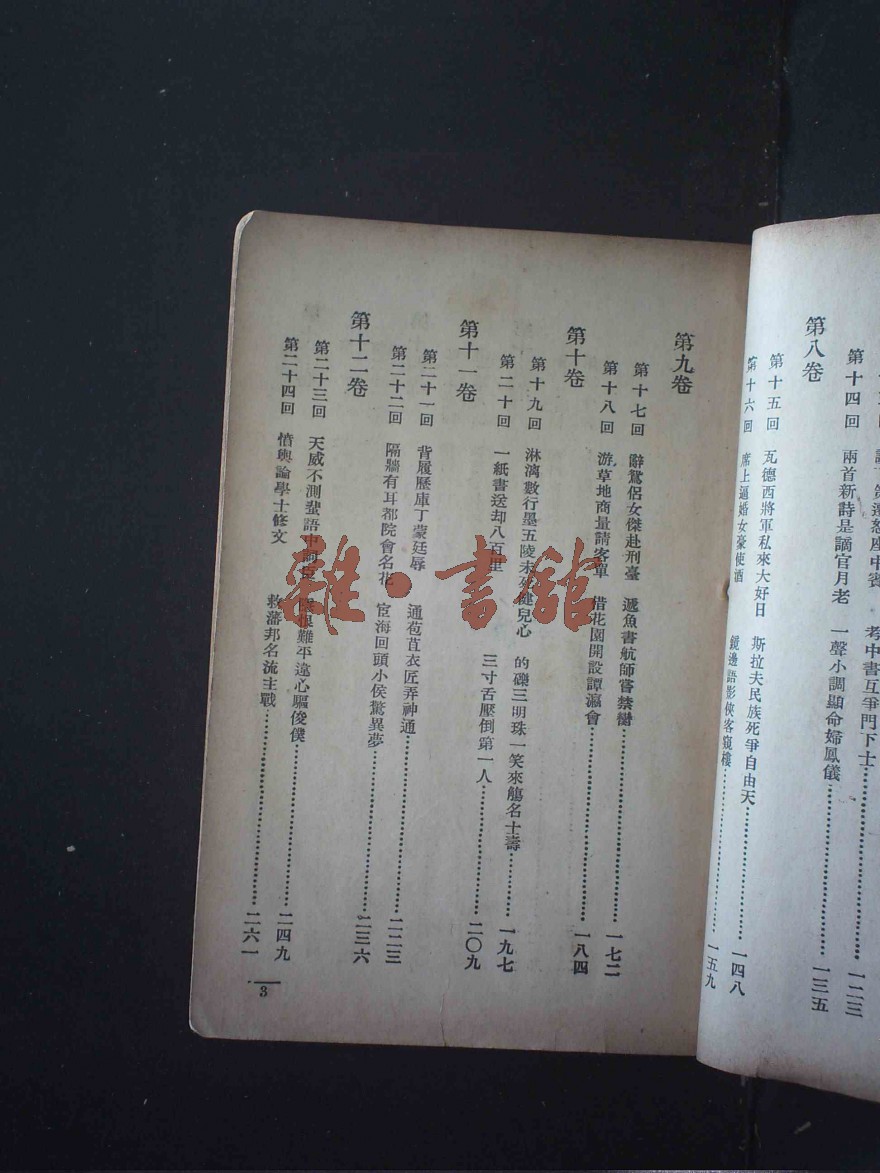 考中書互爭門下士……一二三
第十四回 兩首新詩是謫官月老 一聲小調顯命婦鳳儀……一三五
第八卷
第十五回 瓦德西將軍私來大好日 斯拉夫民族死爭自由天……一四八
第十六回 席上逼婚女豪使酒 鏡邊語影俠客窺樓……一五九
第九卷
第十七回 辭鴛侶女傑赴刑臺 遞魚書航師嘗禁臠……一七二
第十八回 游草地商量請客單 借花園開設譚瀛會……一八四
第十卷
第十九回 淋漓數行墨五陵未死健兒心 的礫三明珠一笑來觴名士壽……一九七
第二十回 一紙書送却八百里 三寸舌壓倒第一人……二〇九
第十一卷
第二十一回 背履歷庫丁蒙廷辱 通苞苴衣匠弄神通……一二二三
第二十二回 隔牆有耳都院會名花 宦海回頭小侯驚異夢……二三六
第十二卷
第二十三回 天威不測蜚語中 難平遠心驅俊僕……二四九
第二十四回 憤輿論學士修文 救藩邦名流主戰……二六一
3
雜·書館